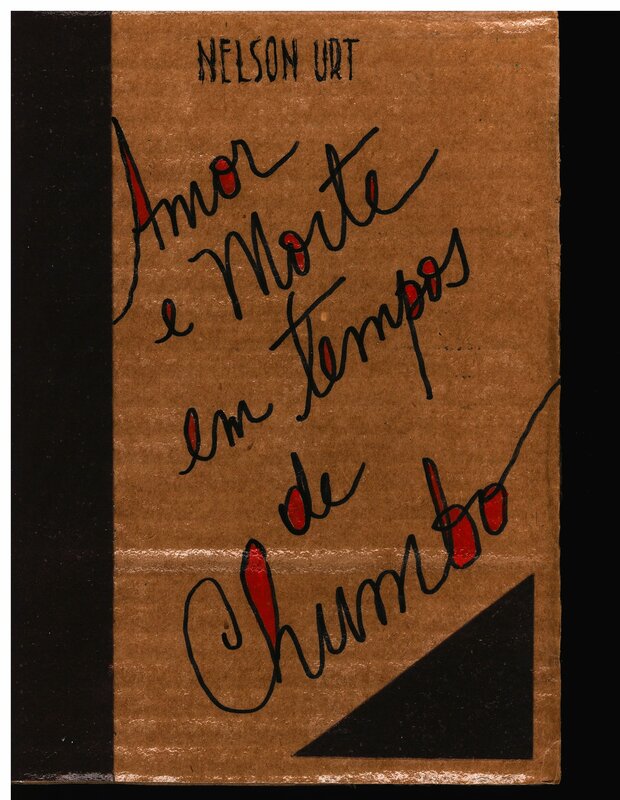 NELSON URT
Amor
e Morte
em tempos
de
Chumbo